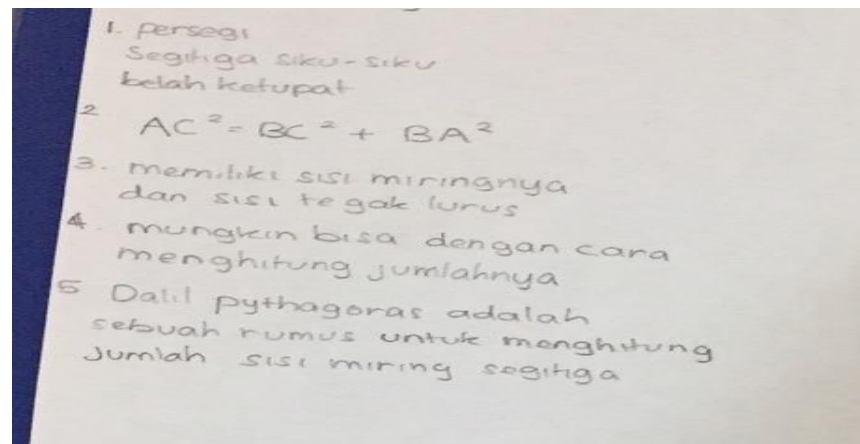 1. persegi
Segitiga siku-siku
belah ketupat
2
AC² = BC² + BA²
3. memiliki sisi miringnya
dan sisi tegak lurus
4. mungkin bisa dengan cara
menghitung jumlahnya
5 Dalil pythagoras adalah
sebuah rumus untuk menghitung
Jumlah sisi miring segitiga